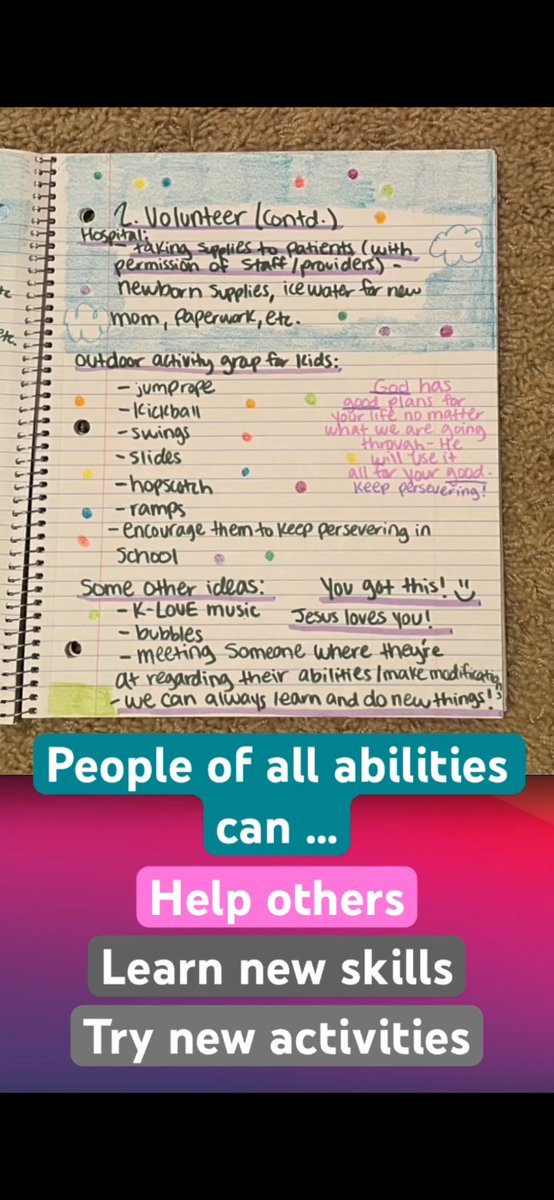 2. Volunteer (contd.)
Hospital:
- taking supplies to patients (with
permission of staff/providers) -
newborn supplies, ice water for new
mom, paperwork, etc.
etc.
outdoor activity group for kids:
- jumprope
- kickball
- swings
- slides
- hopscotch
- ramps
- encourage them to keep persevering in
school
God has
good plans for
your life no matter
what we are going
through - He
will use it
all for your good.
keep persevering!
Some other ideas:
- K-LOVE music
- bubbles
- meeting someone where they're
at regarding their abilities/make modifications
- we can always learn and do new things!
You got this!
Jesus loves you!
People of all abilities
can ...
Help others
Learn new skills
Try new activities